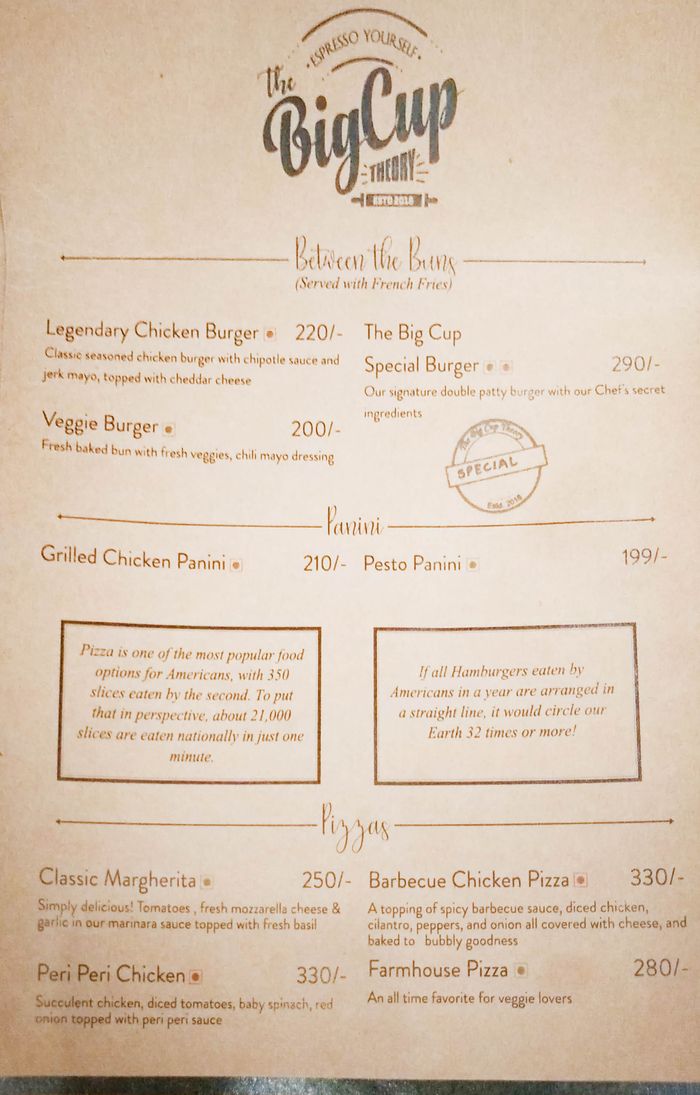 • ESPRESSO YOURSELF •
the
Big Cup
THEORY
ESTD 2018
Between the Buns
(Served with French Fries)
Legendary Chicken Burger 220/-
Classic seasoned chicken burger with chipotle sauce and
jerk mayo, topped with cheddar cheese
Veggie Burger 200/-
Fresh baked bun with fresh veggies, chili mayo dressing
The Big Cup
Special Burger 290/-
Our signature double patty burger with our Chef's secret
ingredients
The Big Cup Theory
SPECIAL
Estd. 2018
Panini
Grilled Chicken Panini 210/-
Pesto Panini 199/-
Pizza is one of the most popular food
options for Americans, with 350
slices eaten by the second. To put
that in perspective, about 21,000
slices are eaten nationally in just one
minute.
If all Hamburgers eaten by
Americans in a year are arranged in
a straight line, it would circle our
Earth 32 times or more!
Pizzas
Classic Margherita 250/-
Simply delicious! Tomatoes , fresh mozzarella cheese &
garlic in our marinara sauce topped with fresh basil
Peri Peri Chicken 330/-
Succulent chicken, diced tomatoes, baby spinach, red
onion topped with peri peri sauce
Barbecue Chicken Pizza 330/-
A topping of spicy barbecue sauce, diced chicken,
cilantro, peppers, and onion all covered with cheese, and
baked to bubbly goodness
Farmhouse Pizza 280/-
An all time favorite for veggie lovers